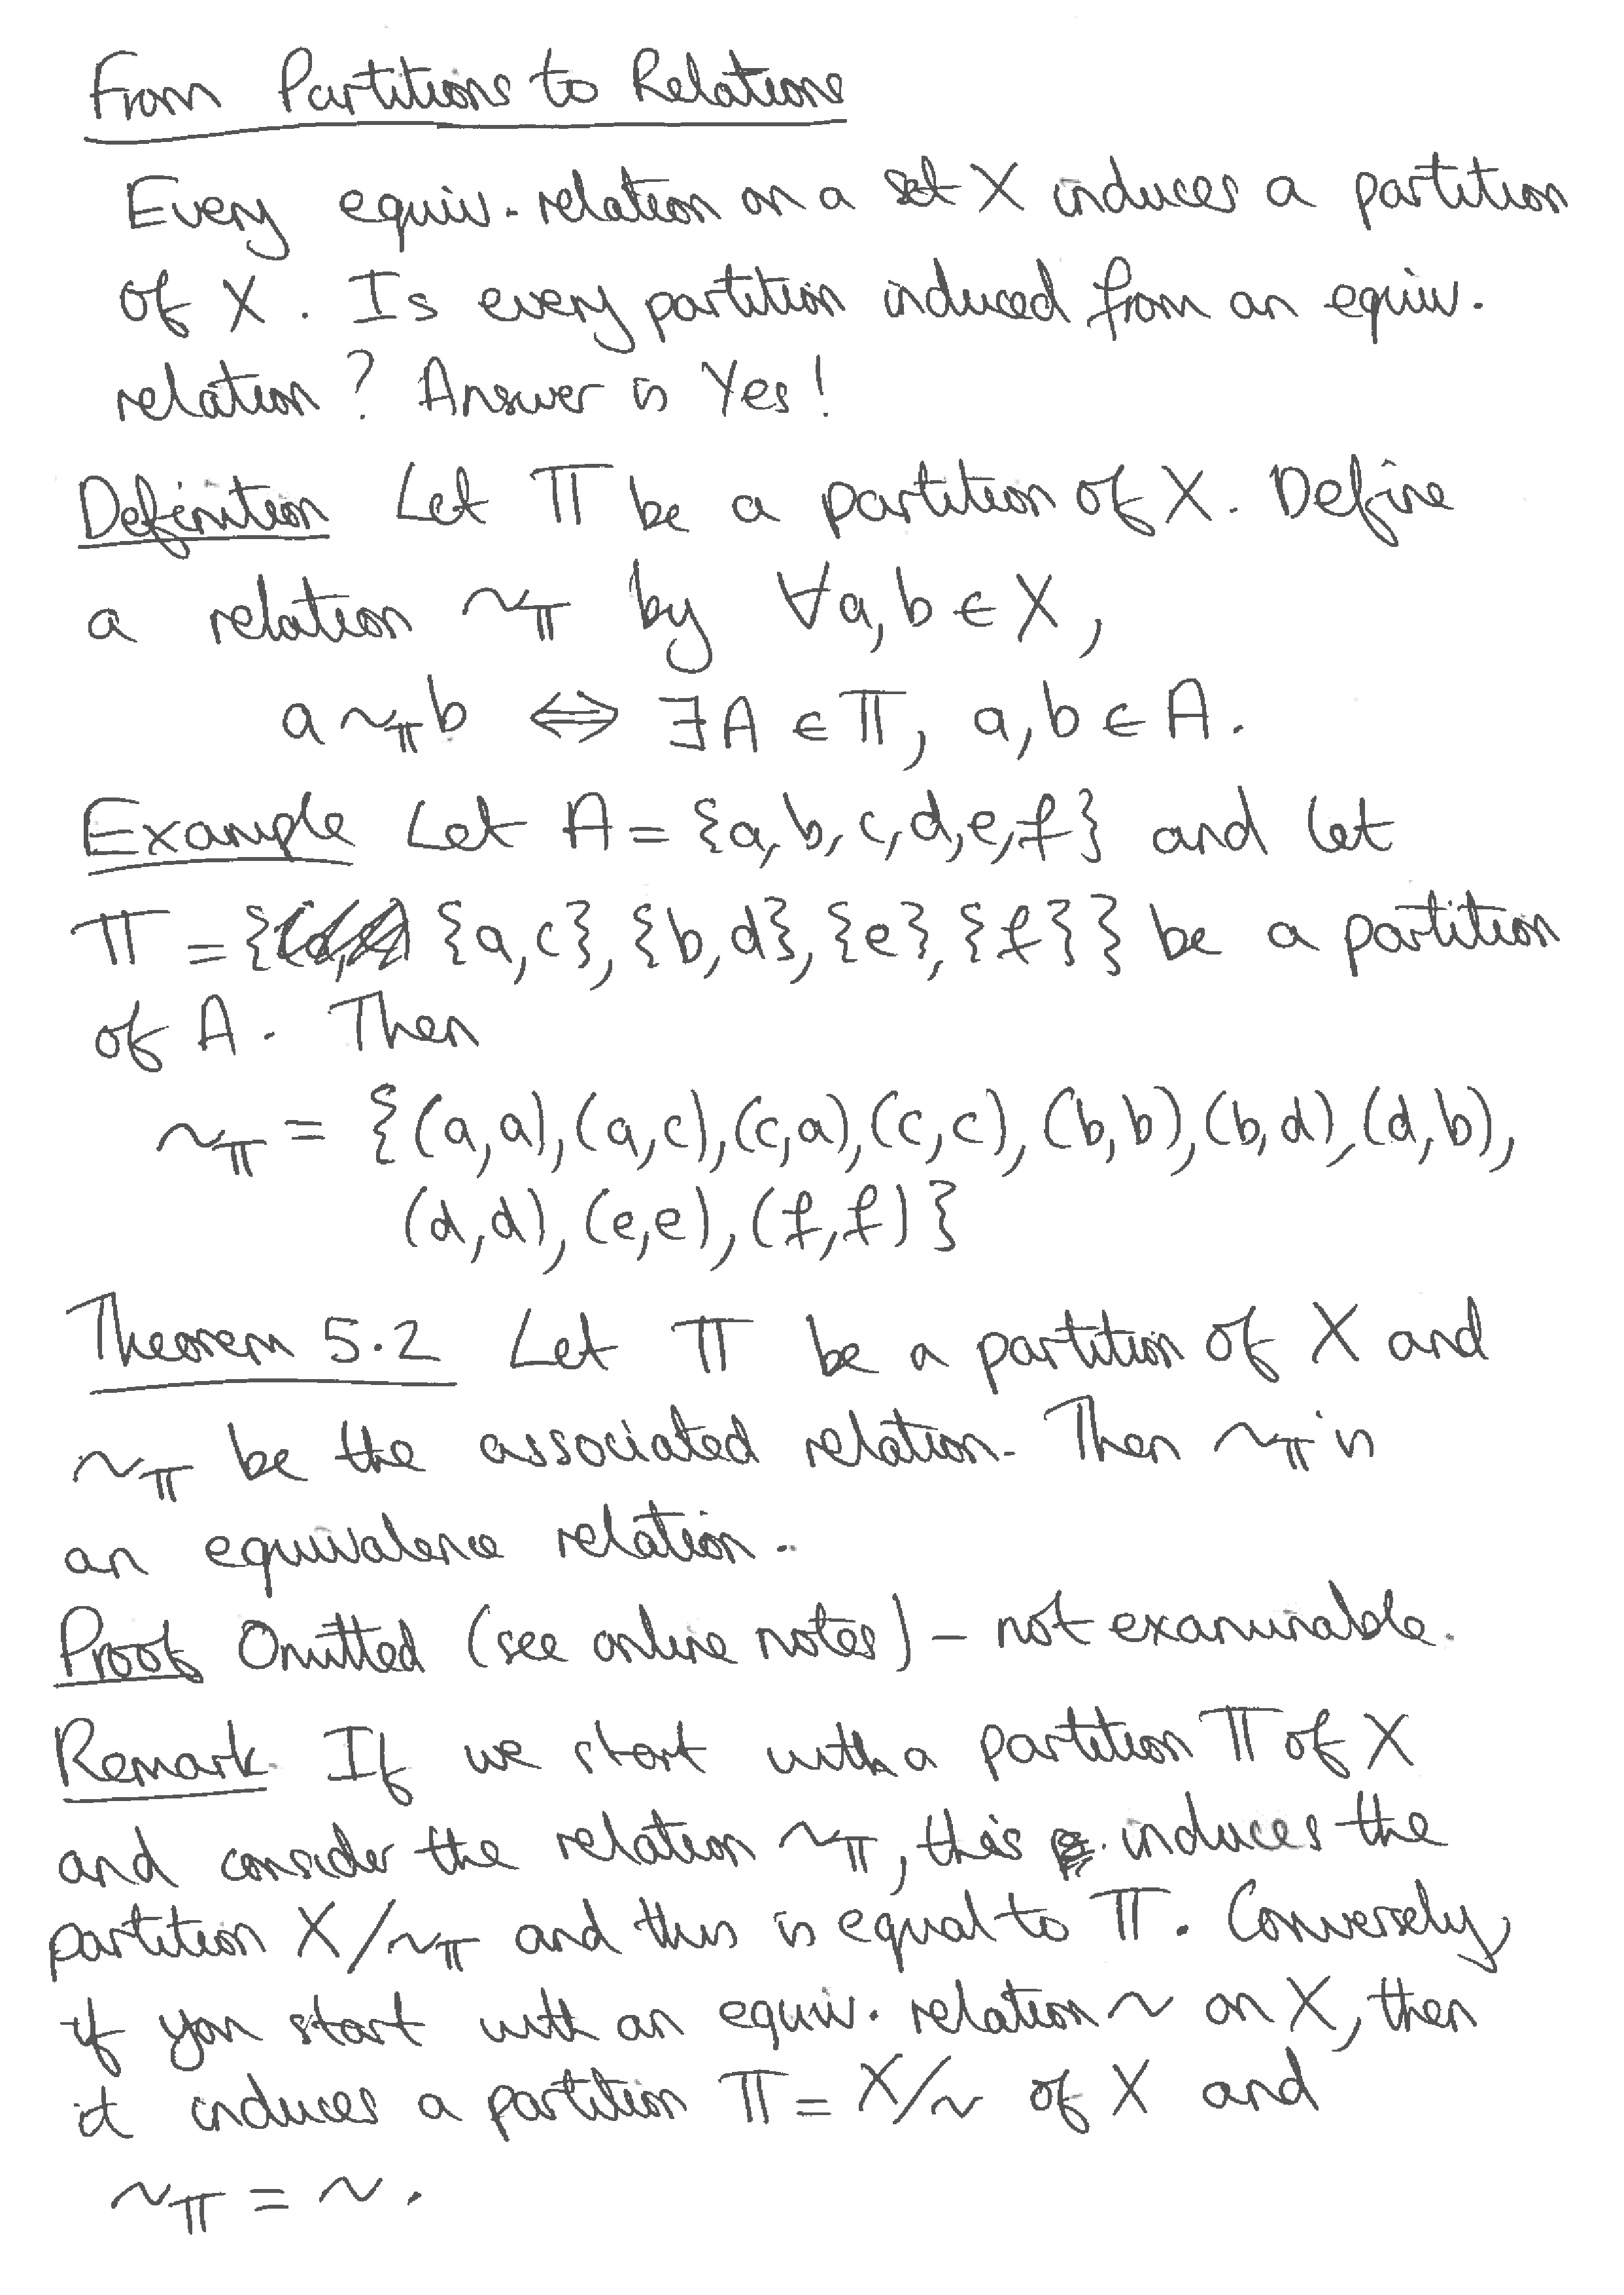 From Partitions to Relations
Every equiv. relation on a set X induces a partition
of X. Is every partition induced from an equiv.
relation? Answer is Yes!
Definition Let Π be a partition of X. Define
a relation ~Π by ∀a,b ∈ X,
a ~Π b ⇔ ∃A ∈ Π, a,b ∈ A.
Example Let A = {a,b,c,d,e,f} and let
Π = { {a,c},{b,d},{e},{f}} be a partition
of A. Then
~Π = {(a,a),(a,c),(c,a),(c,c),(b,b),(b,d),(d,b),
(d,d),(e,e),(f,f)}
Theorem 5.2 Let Π be a partition of X and
~Π be the associated relation. Then ~Π is
an equivalence relation.
Proof Omitted (see online notes) – not examinable.
Remark If we start with a partition Π of X
and consider the relation ~Π, this induces the
partition X/~Π and this is equal to Π. Conversely,
if you start with an equiv. relation ~ on X, then
it induces a partition Π = X/~ of X and
~Π = ~.